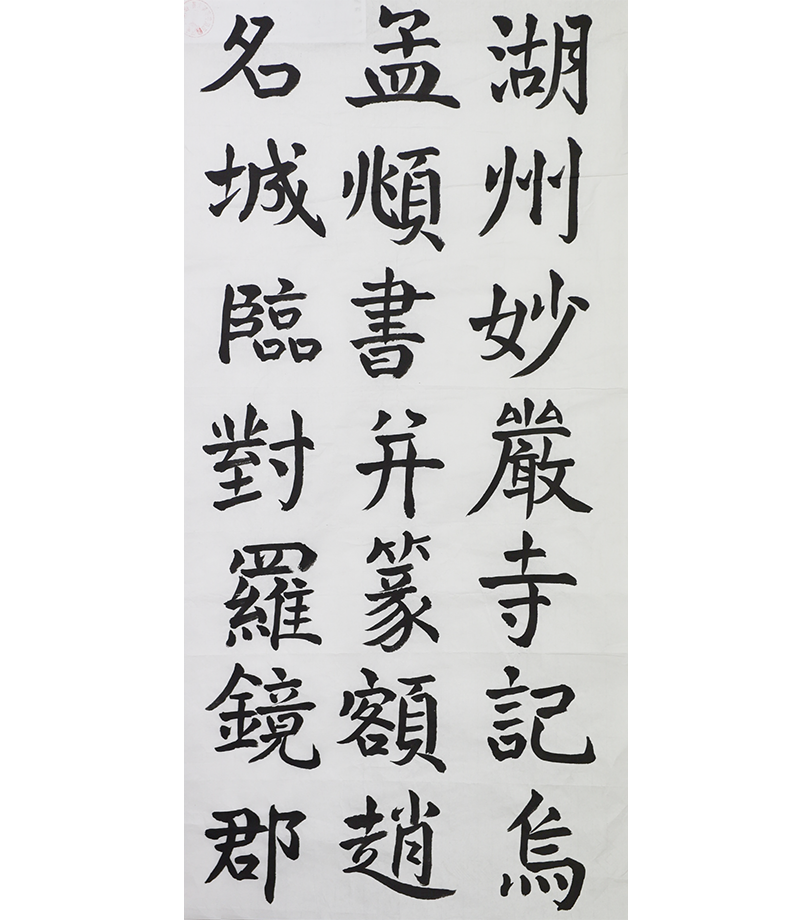 湖州妙嚴寺記烏
孟順書并篆額趙
名城臨對羅鏡郡